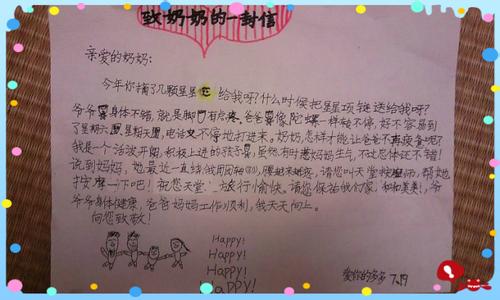 致奶奶的一封信
亲爱的奶奶:
今年你摘了几颗星星 给我呀?什么时候把星星项链送给我呀?
爷爷 身体不错,就是脚 有 疼。爸爸 像陀螺一样转不停,好不容易到
了星期六 ,星期天 ,电话又不停地打进来。奶奶,怎样才能让爸爸不再疲惫呢?
我是一个活泼开朗,积极上进的孩子 ,虽然有时惹妈妈生气,不过总体还不错!
说到妈妈,她最近一直练 ,腰越来越 ,请您叫天堂 师,帮她
按摩一下吧!祝您天堂 旅行愉快。请您保祐他们家,和和美美!爷
爷 身体健康,爸爸妈妈工作顺利,我天天向上。
向您致敬!
Happy!
Happy!
Happy!
Happy!
爱你的多多 7.19